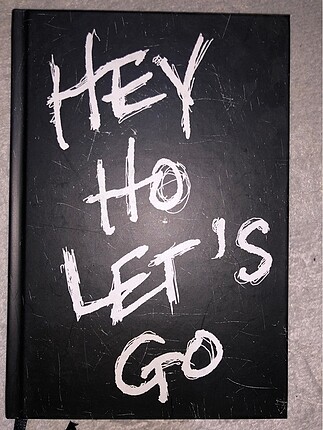 HEY
HO
LET'S
GO